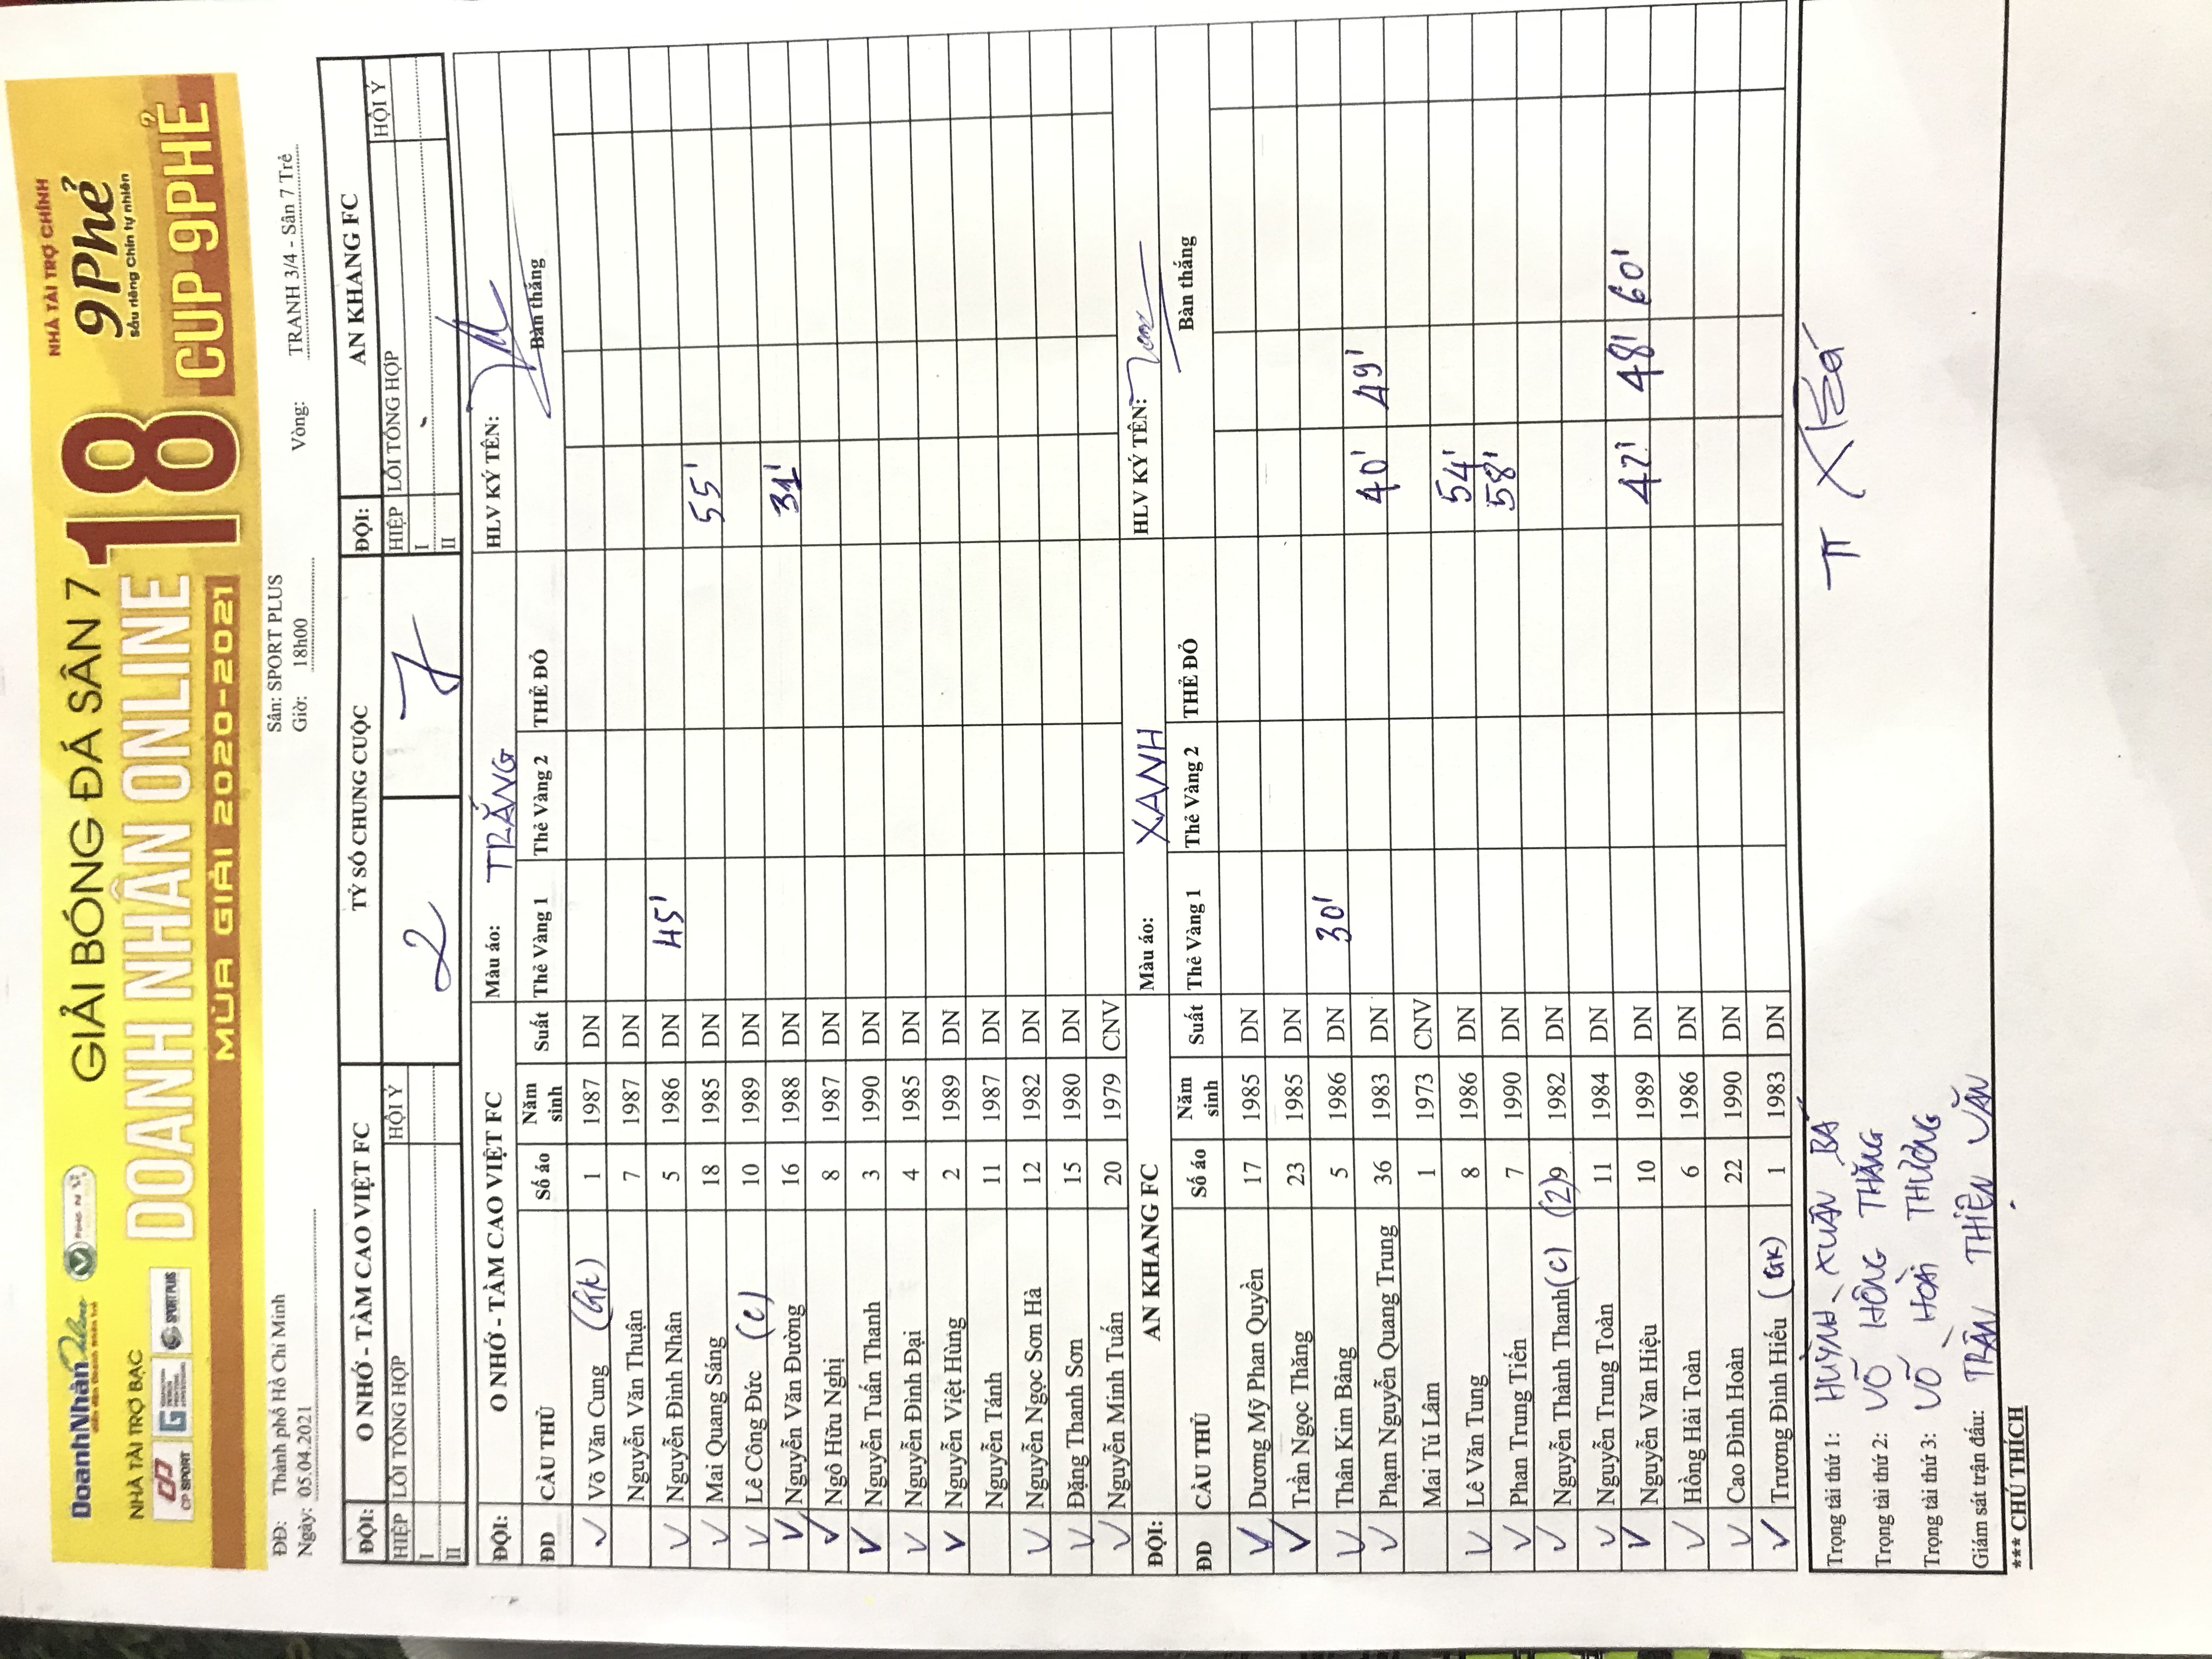 DoanhNhânOnline
NHÀ TÀI TRỢ BẠC
CP SPORT
SPORT PLUS
GIẢI BÓNG ĐÁ SÂN 7
DOANH NHÂN ONLINE
MÙA GIẢI 2020-2021
18
NHÀ TÀI TRỢ CHÍNH
9Phẻ
sầu riêng chín tự nhiên
CUP 9PHẺ
ĐĐ: Thành phố Hồ Chí Minh Sân: SPORT PLUS
Ngày: 05.04.2021 Giờ: 18h00 Vòng: TRANH 3/4 - Sân 7 Trẻ
ĐỘI: O NHỚ - TÀM CAO VIỆT FC TỶ SỐ CHUNG CUỘC ĐỘI: AN KHANG FC
HIỆP LỖI TỔNG HỢP HỘI Ý 2 7 HIỆP LỖI TỔNG HỢP HỘI Ý
I I
II II
ĐỘI: O NHỚ - TÀM CAO VIỆT FC Màu áo: TRẮNG HLV KÝ TÊN:
ĐD CẦU THỦ Số áo Năm sinh Suất Thẻ Vàng 1 Thẻ Vàng 2 THẺ ĐỎ Bàn thắng
✓ Võ Văn Cung (GK) 1 1987 DN
Nguyễn Văn Thuận 7 1987 DN
✓ Nguyễn Đình Nhân 5 1986 DN 45'
✓ Mai Quang Sáng 18 1985 DN 55'
✓ Lê Công Đức (C) 10 1989 DN
✓ Nguyễn Văn Đường 16 1988 DN 31'
✓ Ngô Hữu Nghị 8 1987 DN
✓ Nguyễn Tuấn Thanh 3 1990 DN
✓ Nguyễn Đình Đại 4 1985 DN
✓ Nguyễn Việt Hùng 2 1989 DN
Nguyễn Tánh 11 1987 DN
✓ Nguyễn Ngọc Sơn Hà 12 1982 DN
✓ Đặng Thanh Sơn 15 1980 DN
✓ Nguyễn Minh Tuấn 20 1979 CNV
ĐỘI: AN KHANG FC Màu áo: XANH HLV KÝ TÊN:
ĐD CẦU THỦ Số áo Năm sinh Suất Thẻ Vàng 1 Thẻ Vàng 2 THẺ ĐỎ Bàn thắng
✓ Dương Mỹ Phan Quyền 17 1985 DN
✓ Trần Ngọc Thăng 23 1985 DN
✓ Thân Kim Bảng 5 1986 DN 30'
✓ Phạm Nguyễn Quang Trung 36 1983 DN 40' 49'
Mai Tú Lâm 1 1973 CNV
✓ Lê Văn Tung 8 1986 DN 54'
✓ Phan Trung Tiến 7 1990 DN 58'
✓ Nguyễn Thành Thanh (C) (2) 9 1982 DN
✓ Nguyễn Trung Toàn 11 1984 DN
✓ Nguyễn Văn Hiệu 10 1989 DN 42' 48' 60'
✓ Hồng Hải Toàn 6 1986 DN
✓ Cao Đình Hoàn 22 1990 DN
✓ Trương Đình Hiếu (GK) 1 1983 DN
Trọng tài thứ 1: HUỲNH XUÂN BÁ
Trọng tài thứ 2: VÕ HỒNG THẮNG
Trọng tài thứ 3: VÕ HOÀI THƯƠNG
Giám sát trận đấu: TRẦN THIÊN VĂN
*** CHÚ THÍCH